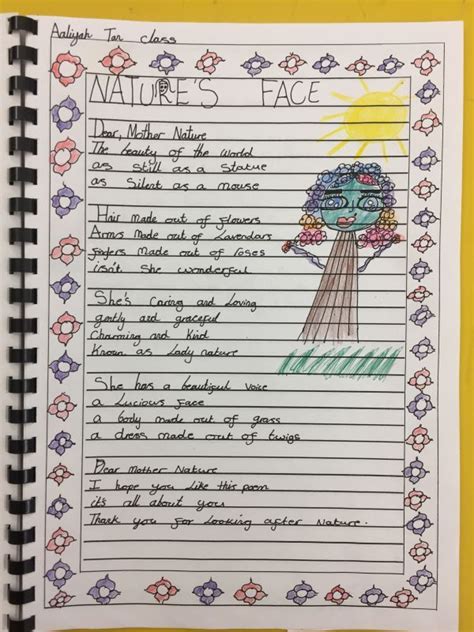 Aaliyah Tan class
NATURE'S FACE
Dear, Mother Nature
The beauty of the World
as Still as a Statue
as Silent as a mouse
Hair made out of flowers
Arms made out of Lavendars
fingers made out of roses
isn't She wonderful
She's Caring and Loving
gently and graceful
Charming and Kind
Known as Lady nature
She has a beautiful Voice
a Lucious Face
a body made out of grass
a dress made out of twigs
Dear Mother Nature
I hope you Like this poem
it's all about you
Thank you for Looking after Nature.